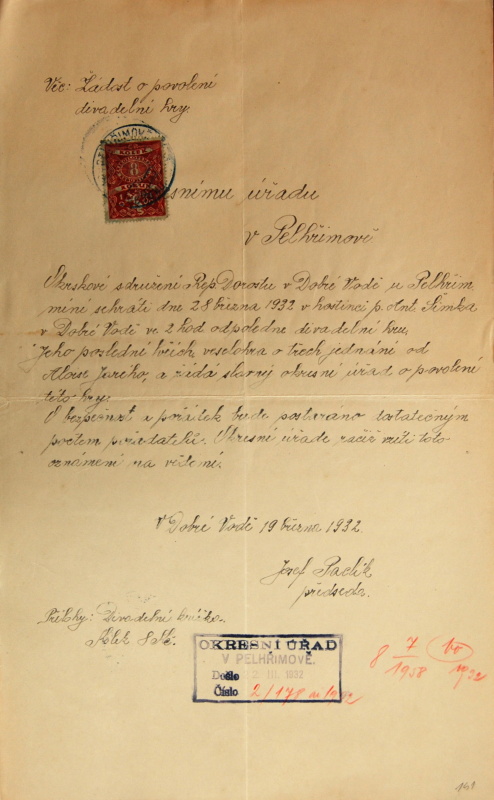 Věc: Žádost o povolení
divadelní hry.
snímu úřadu
v Pelhřimově
Okrskové sdružení Rep. Dorostu v Dobré Vodě u Pelhřim
míní sehráti dne 28 března 1932 v hostinci p. Ant. Šimka
v Dobré Vodě ve 2 hod odpoledne divadelní hru.
Jeho poslední hřích, veselohra o třech jednání od
a žádá slavný okresní úřad o povolení
této hry.
O bezpečnost a pořádek bude postaráno dostatečným
počtem pořadatelů. Okresní úřade račiž vzíti toto
oznámení na vědomí.
V Dobré Vodě 19 března 1932.
Josef Pavlík
předseda.
Přílohy: Divadelní knížka.
Kolek 8 Kč.
OKRESNÍ ÚŘAD
V PELHŘIMOVĚ.
Došlo III. 1932
Číslo 2/178
8 7
1958
191